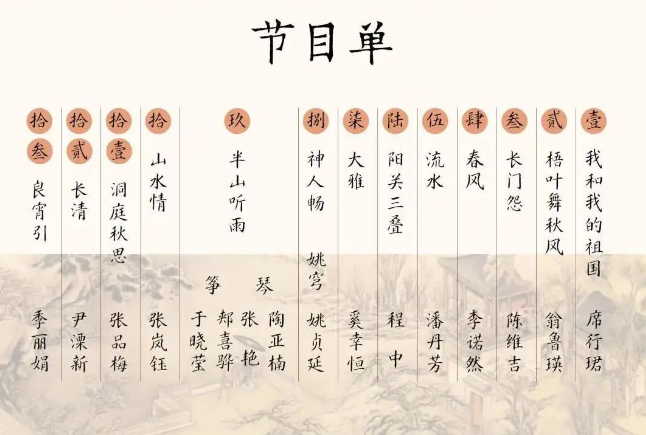 节目单
壹 我和我的祖国 席行珺
贰 梧叶舞秋风 翁鲁瑛
叁 长门怨 陈维吉
肆 春风 李诺然
伍 流水 潘丹芳
陆 阳关三叠 程中
柒 大雅 奚幸恒
捌 神人畅 姚穹 姚贞延
玖 半山听雨
琴 陶亚楠 张艳
筝 郏喜骅 于晓莹
拾 山水情 张岚钰
拾壹 洞庭秋思 张品梅
拾贰 长清 尹溧新
拾叁 良宵引 季丽娟